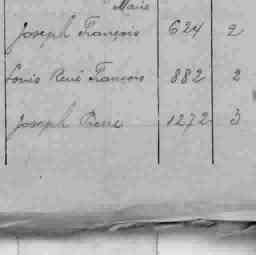 Marie
Joseph François 624 2
Louis René François 882 2
Joseph Pierre 1272 3